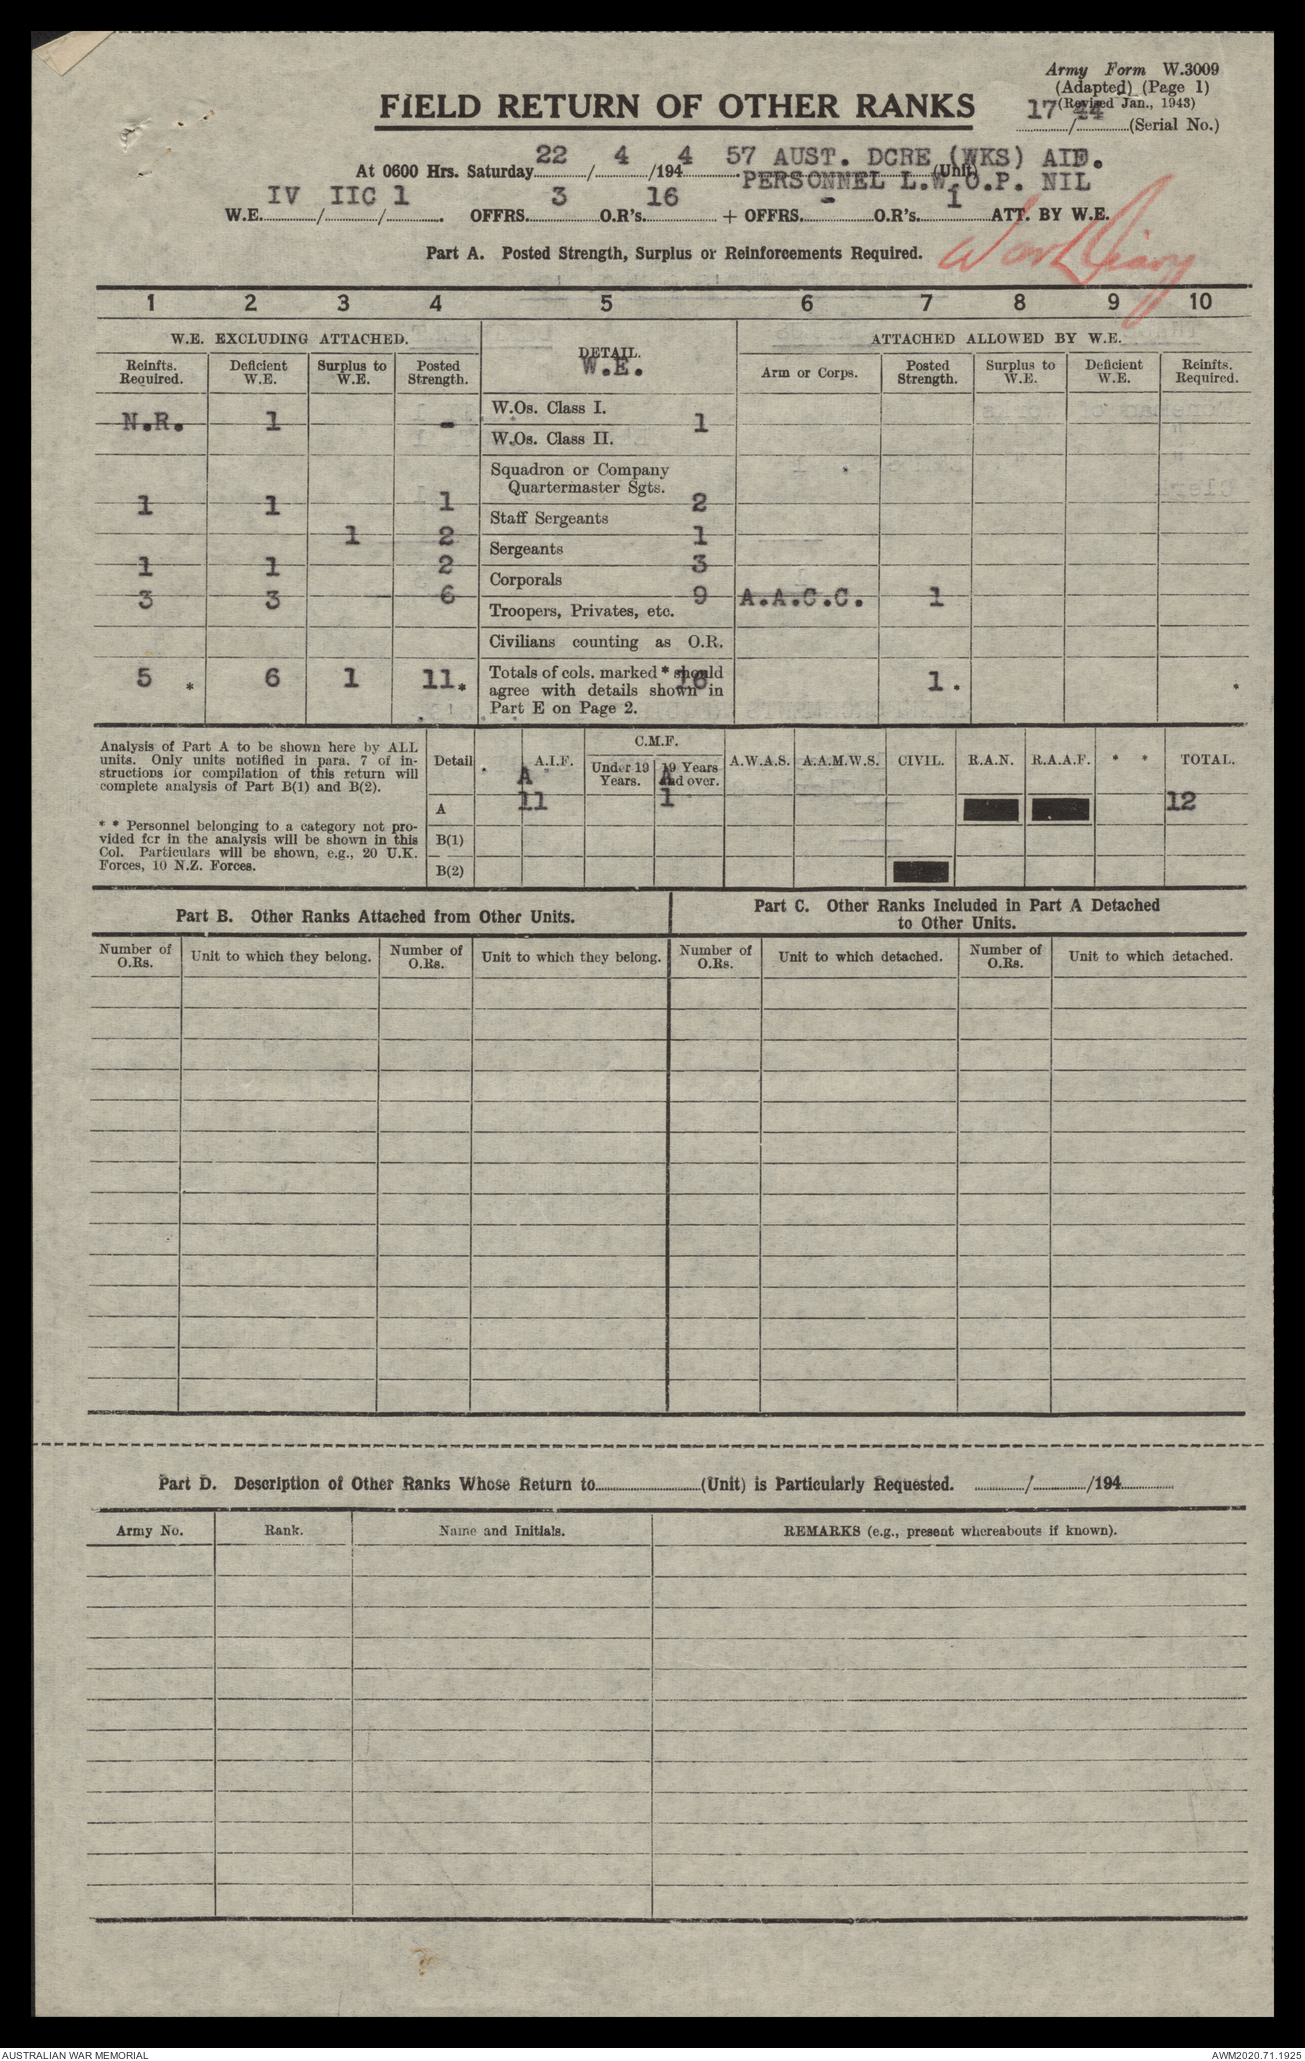 Army Form W.3009
(Adapted) (Page 1)
(Revised Jan., 1943)
17/44 (Serial No.)
FIELD RETURN OF OTHER RANKS
At 0600 Hrs. Saturday 22/4/1944. 57 AUST. DCRE (WKS) AIF. (Unit)
PERSONNEL L.W.O.P. NIL
W.E. IV / IIC / 1. OFFRS. 3 O.R's. 16 + OFFRS. - O.R's. 1 ATT. BY W.E.
War Diary
Part A. Posted Strength, Surplus or Reinforcements Required.
1 2 3 4 5 6 7 8 9 10
W.E. EXCLUDING ATTACHED. DETAIL. W.E. ATTACHED ALLOWED BY W.E.
Reinfts. Required. Deficient W.E. Surplus to W.E. Posted Strength. Arm or Corps. Posted Strength. Surplus to W.E. Deficient W.E. Reinfts. Required.
W.Os. Class I.
N.R. 1 - 1
W.Os. Class II.
Squadron or Company
Quartermaster Sgts.
1 1 1 2
Staff Sergeants
1 2 1
Sergeants
1 1 2 3
Corporals
3 3 6 9 A.A.C.C. 1
Troopers, Privates, etc.
Civilians counting as O.R.
5 * 6 1 11 * Totals of cols. marked * should 16 1 . *
agree with details shown in
Part E on Page 2.
Analysis of Part A to be shown here by ALL
units. Only units notified in para. 7 of in-
structions for compilation of this return will
complete analysis of Part B(1) and B(2).
* * Personnel belonging to a category not pro-
vided for in the analysis will be shown in this
Col. Particulars will be shown, e.g., 20 U.K.
Forces, 10 N.Z. Forces.
C.M.F.
Detail . A.I.F. Under 19 Years. 19 Years and over. A.W.A.S. A.A.M.W.S. CIVIL. R.A.N. R.A.A.F. * * TOTAL.
A A
A 11 1 12
B(1)
B(2)
Part B. Other Ranks Attached from Other Units.
Part C. Other Ranks Included in Part A Detached
to Other Units.
Number of O.Rs. Unit to which they belong. Number of O.Rs. Unit to which they belong. Number of O.Rs. Unit to which detached. Number of O.Rs. Unit to which detached.
Part D. Description of Other Ranks Whose Return to (Unit) is Particularly Requested. / /194
Army No. Rank. Name and Initials. REMARKS (e.g., present whereabouts if known).
AUSTRALIAN WAR MEMORIAL
AWM2020.71.1925